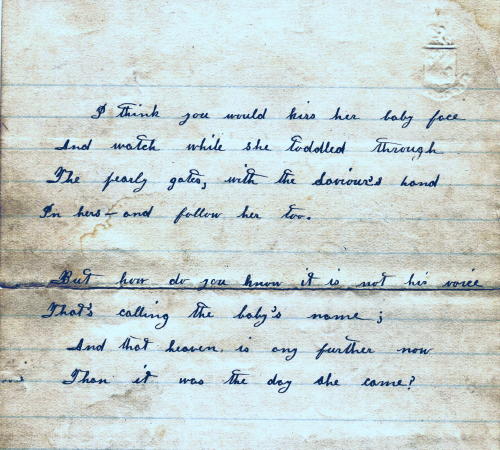 I think you would kiss her baby face
And watch while she toddled through
The pearly gates, with the Saviour's hand
In hers — and follow her too.
But how do you know it is not his voice
That's calling the baby's name;
And that heaven is any further now
Than it was the day she came?